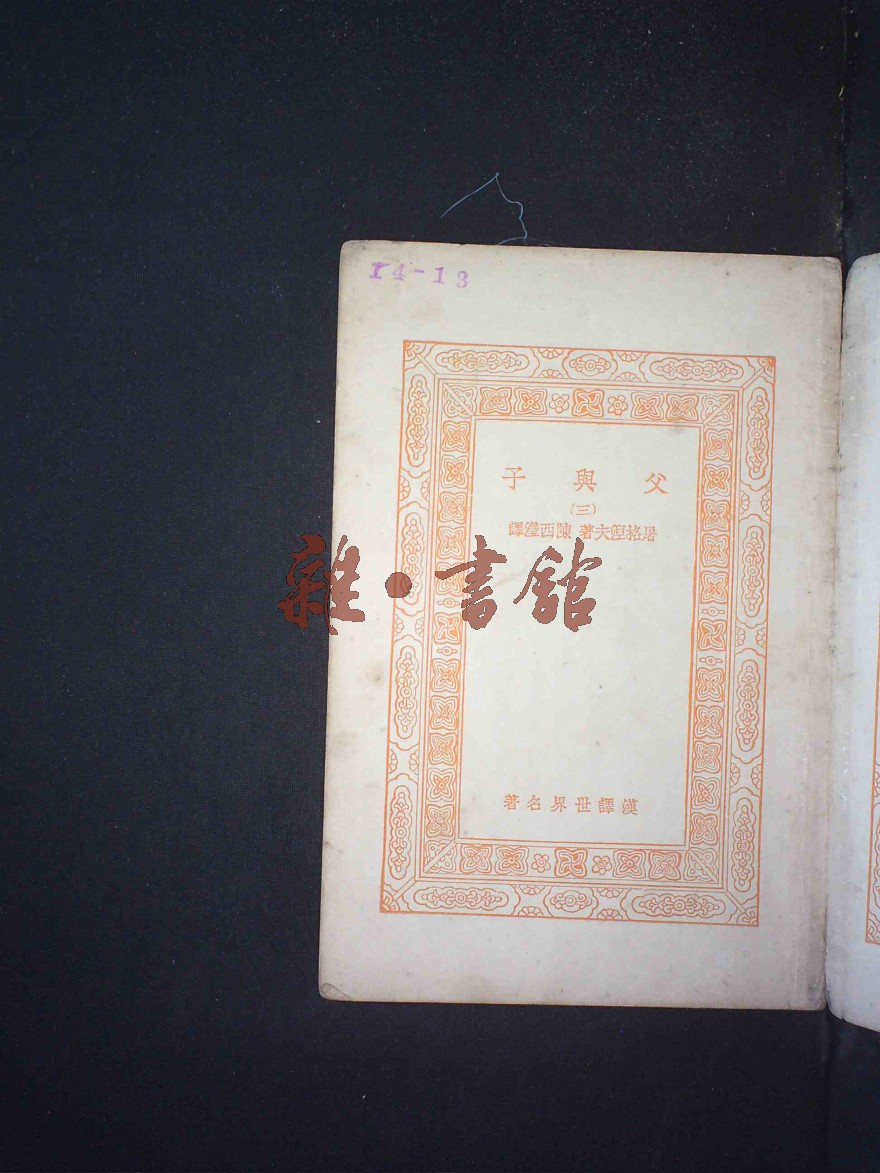 14-13
父與子
(三)
屠格涅夫著 陳西瀅譯
雜·書館
漢譯世界名著